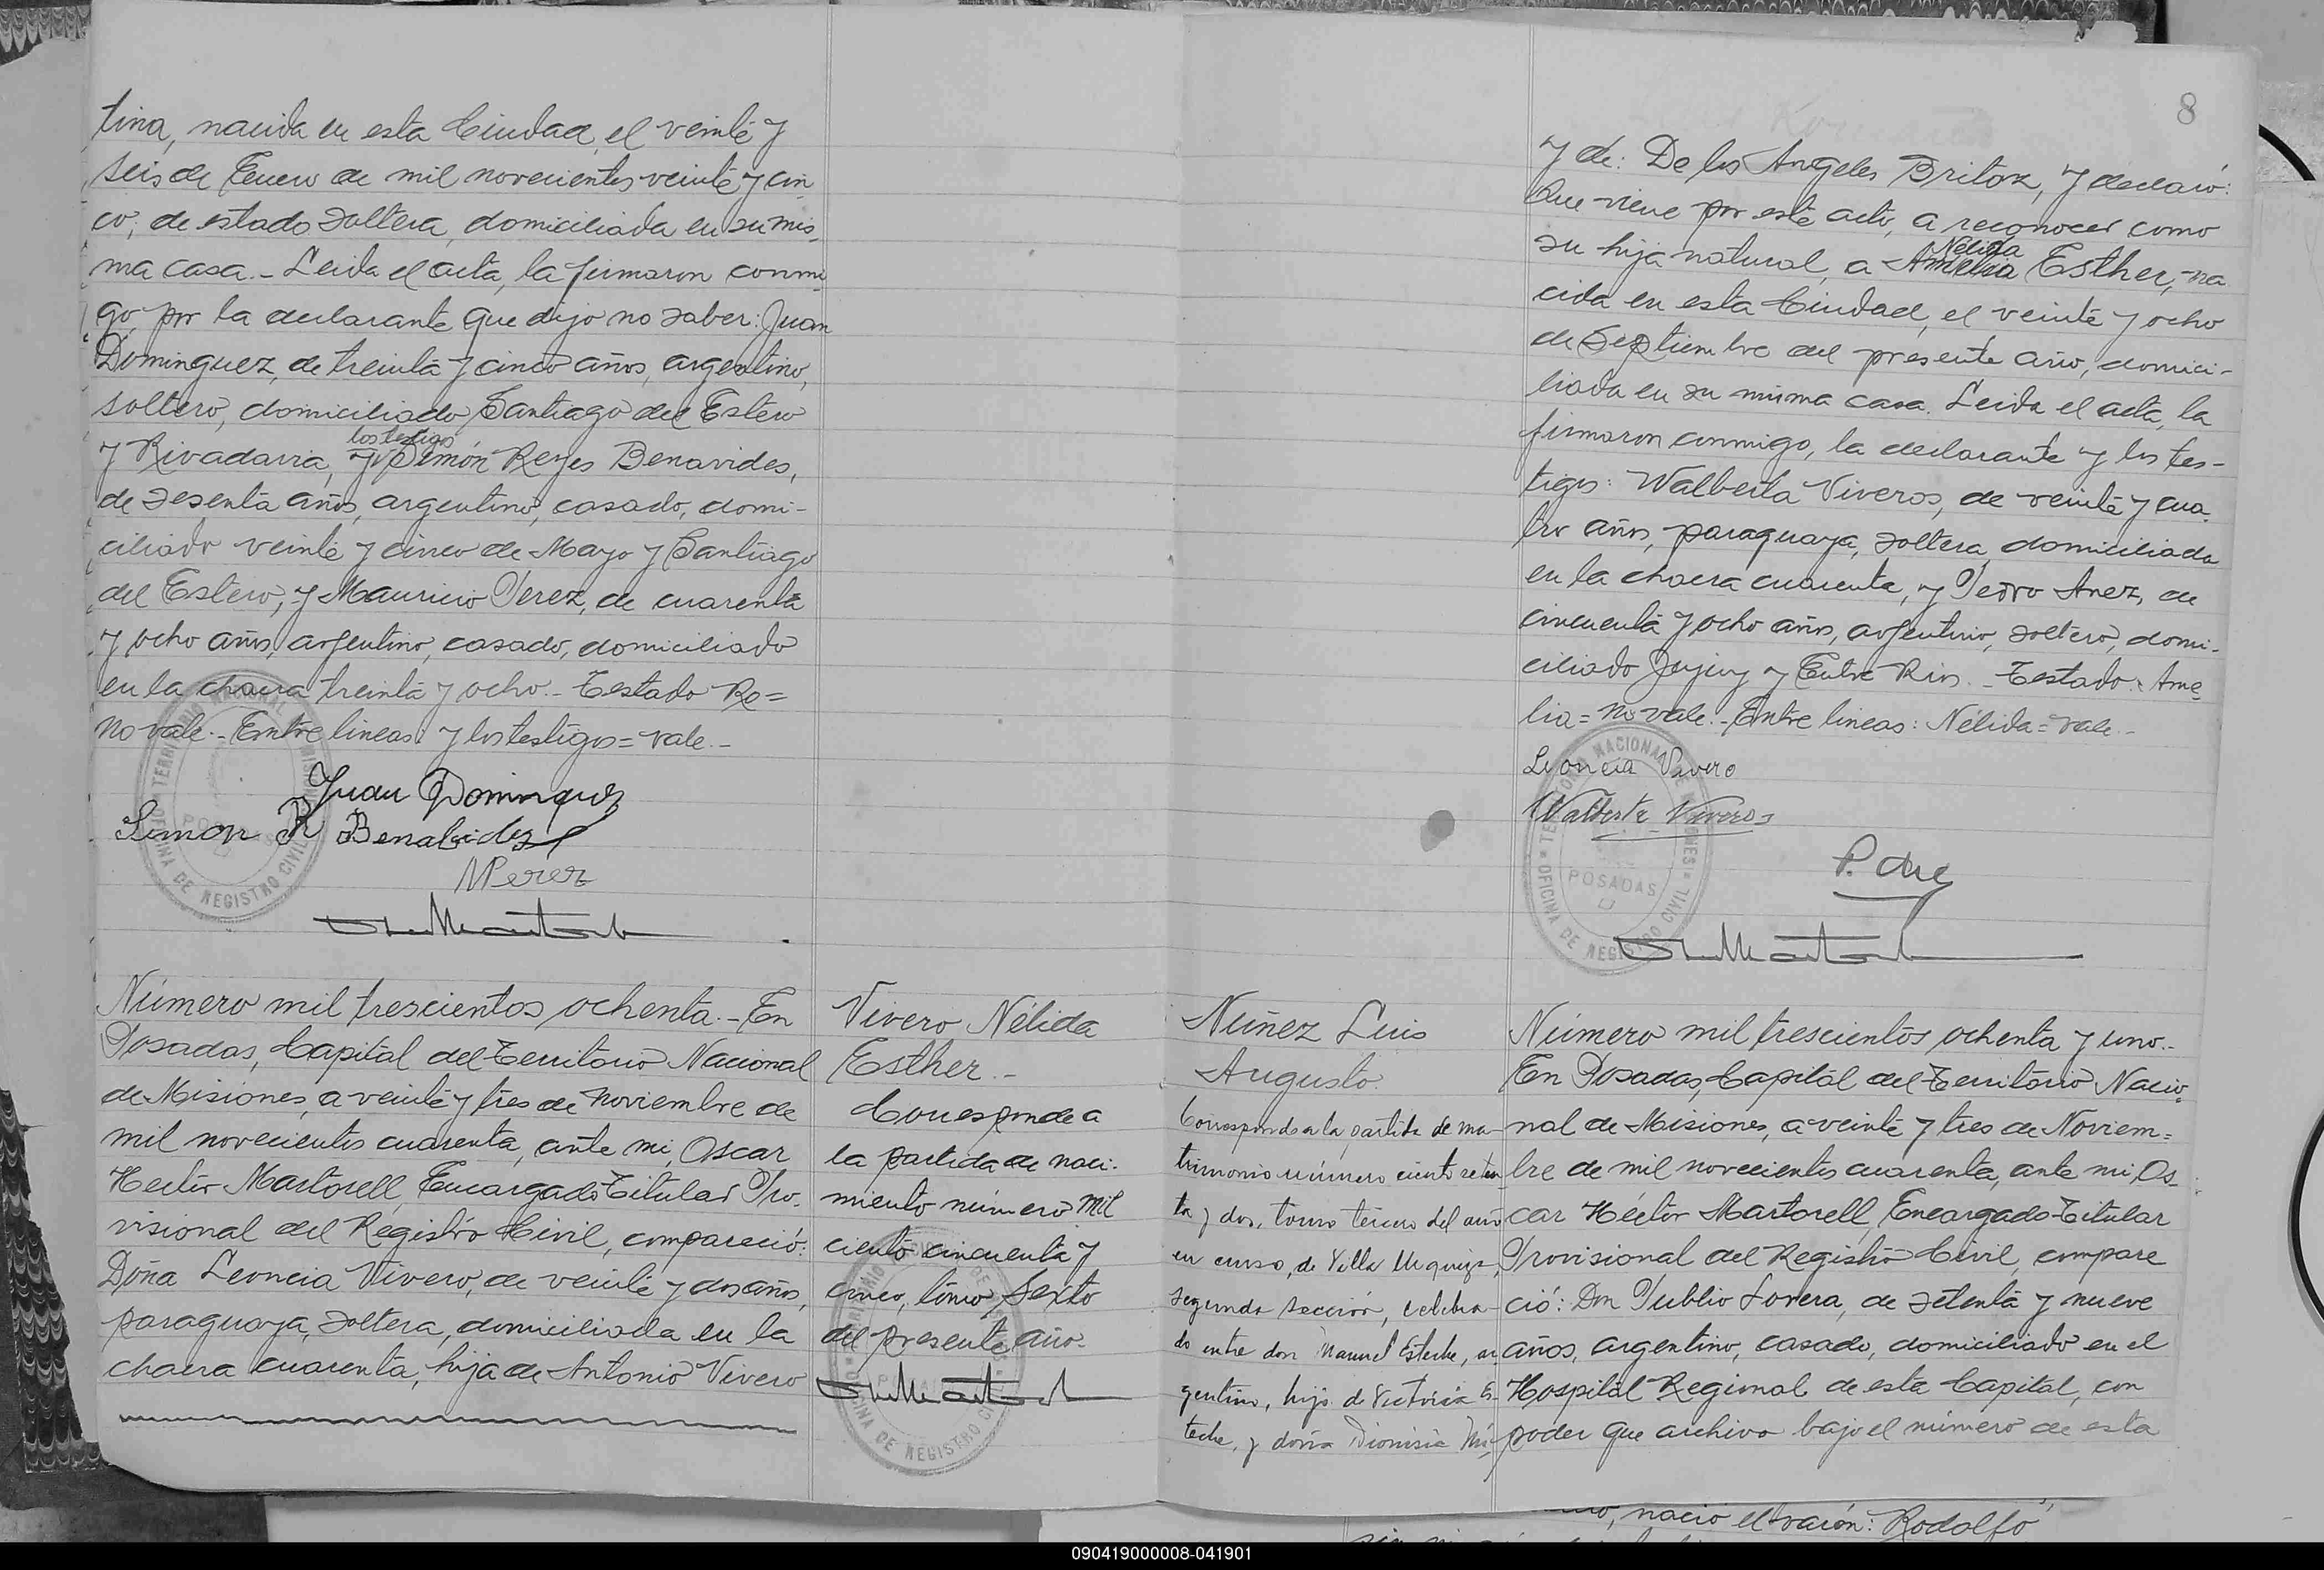 tina, nacida en esta Ciudad, el veinte y
seis de Enero de mil novecientos veinte y cin
co, de estado soltera, domiciliada en su mis-
ma casa.- Leida el acta, la firmaron conmi
go, por la declarante que dijo no saber: Juan
Dominguez, de treinta y cinco años, argentino,
soltero, domiciliado Santiago del Estero
los testigos
y Rivadavia, y Simón Reyes Benavides,
de sesenta años, argentino, casado, domi-
ciliado veinte y cinco de Mayo y Santiago
del Estero, y Mauricio Perez, de cuarenta
y ocho años, argentino, casado, domiciliado
en la chacra treinta y ocho.- Testado Ro=
no vale.- Entre lineas: y los testigos=vale.-
Juan Dominguez
Simon R Benabidez
MPerez
Número mil trescientos ochenta.- En
Posadas, Capital del Territorio Nacional
de Misiones, a veinte y tres de Noviembre de
mil novecientos cuarenta, ante mi, Oscar
Hector Martorell, Encargado Titular Pro-
visional del Registro Civil, compareció:
Doña Leoncia Vivero, de veinte y dos años,
paraguaya, soltera, domiciliada en la
chacra cuarenta, hija de Antonio Vivero
Vivero Nélida
Esther.-
Corresponde a
la partida de naci-
miento número mil
ciento cincuenta y
cinco, tomo Sexto
del presente año.
8
y de: De los Angeles Britoz, y declaró:
Que viene por este acto, a reconocer como
Nélida
su hija natural, a Amelia Esther, na
cida en esta Ciudad, el veinte y ocho
de Septiembre del presente año, domici-
liada en su misma casa. Leida el acta, la
firmaron conmigo, la declarante y los tes-
tigos: Walberta Viveros, de veinte y cua-
tro años, paraguaya, soltera, domiciliada
en la chacra cuarenta, y Pedro Anez, de
cincuenta y ocho años, argentino, soltero, domi-
ciliado Jujuy y Entre Rios.- Testado: Ame
lia=no vale.- Entre lineas: Nélida=vale.-
Leoncia Vivero
Walberta Viveros
TERRITORIO NACIONAL DE MISIONES
POSADAS
OFICINA DE REGISTRO CIVIL
Nuñez Luis
Augusto.
Corresponde a la partida de ma-
trimonio número ciento seten
ta y dos, tomo tercero del año
en curso, de Villa Urquiza,
segunda sección, celebra-
do entre don Manuel Esteche, ar
gentino, hijo de Victoria Es-
teche, y doña Dionisia Nú-
Número mil trescientos ochenta y uno.-
En Posadas, Capital del Territorio Nacio-
nal de Misiones, a veinte y tres de Noviem=
bre de mil novecientos cuarenta, ante mi, Os-
car Héctor Martorell, Encargado Titular
Provisional del Registro Civil, compare
ció: Don Publio Lovera, de setenta y nueve
años, argentino, casado, domiciliado en el
Hospital Regional de esta Capital, con
poder que archivo bajo el número de esta
nació el varón: Rodolfo
090419000008-041901